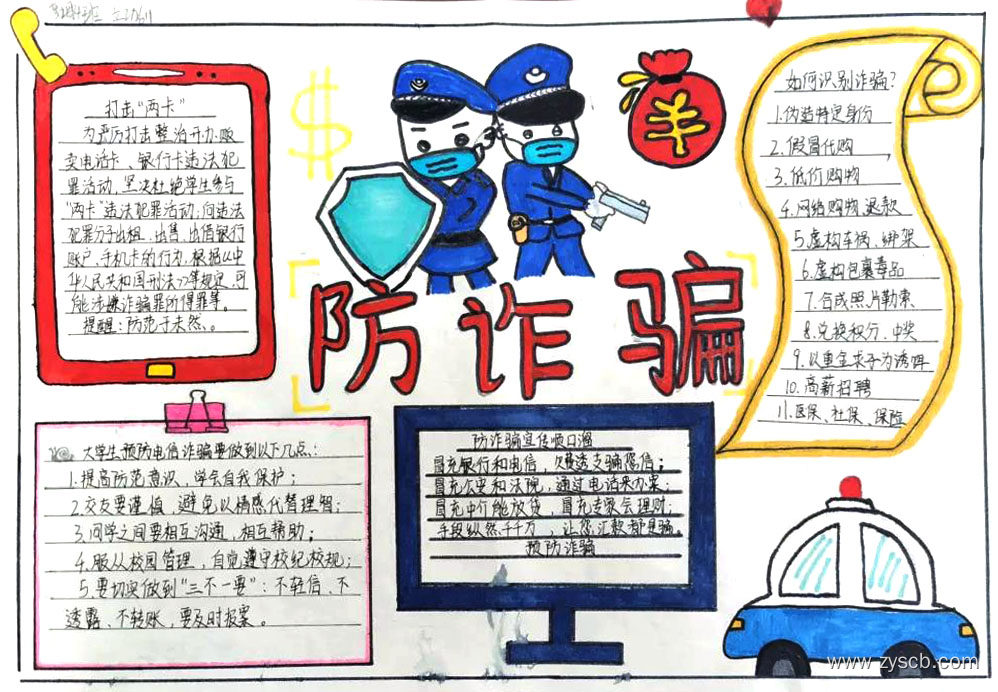 打击“两卡”
为严厉打击整治开办.贩
卖电话卡、银行卡违法犯
罪活动,坚决杜绝学生参与
“两卡”违法犯罪活动,向违法
犯罪分子出租、出售、出借银行
账户、手机卡的行为,根据《中
华人民共和国刑法》等规定,可
能涉嫌诈骗罪所得罪等。
提醒:防范于未然。
防诈骗
如何识别诈骗?
1.伪造特定身份
2.假冒代购
3.低价购物
4.网络购物退款
5.虚构车祸、绑架
6.虚构包裹毒品
7.合成照片勒索
8.兑换积分、中奖
9.以重金求子为诱饵
10.高薪招聘
11.医保、社保、保险
大学生预防电信诈骗要做到以下几点:
1.提高防范意识,学会自我保护;
2.交友要谨慎,避免以情感代替理智;
3.同学之间要相互沟通,相互帮助;
4.服从校园管理,自觉遵守校纪校规;
5.要切实做到“三不一要”:不轻信、不
透露、不转账,要及时报案。
防诈骗宣传顺口溜
冒充银行和电信,欠费透支骗您信;
冒充公安和法院,通过电话来办案;
冒充中介能放贷,冒充专家会理财;
手段纵然千千万,让您汇款都是骗。
预防诈骗
www.zyscb.com